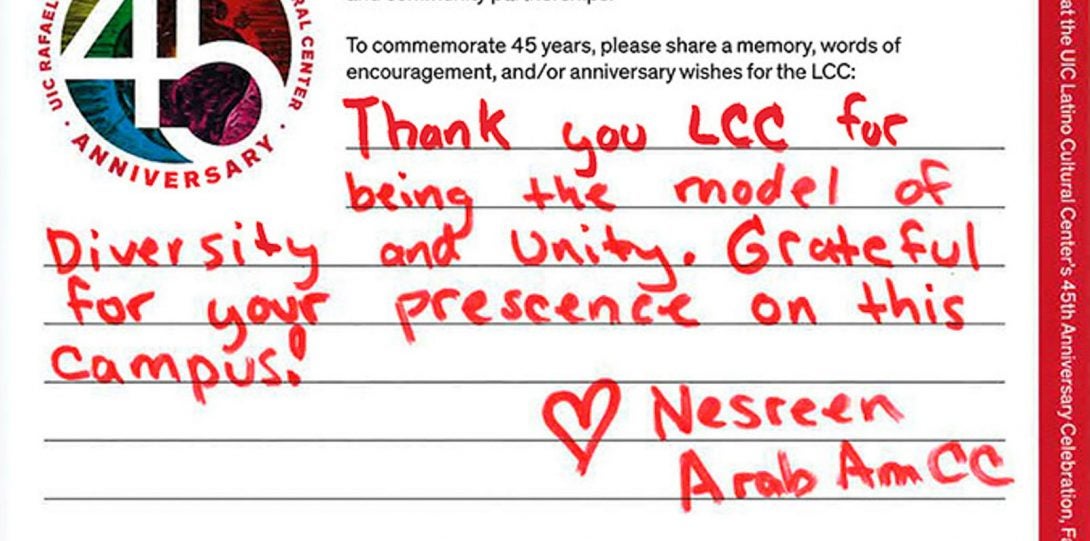 UIC RAFAEL
RAL CENTER
45
· ANNIVERSARY ·
and community partnerships.
To commemorate 45 years, please share a memory, words of
encouragement, and/or anniversary wishes for the LCC:
Thank you LCC for
being the model of
Diversity and Unity. Grateful
for your prescence on this
campus!
♡ Nesreen
Arab Am CC
at the UIC Latino Cultural Center's 45th Anniversary Celebration, Fa